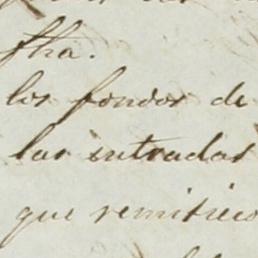 fha.
los fondos de
las entradas
que remitieco